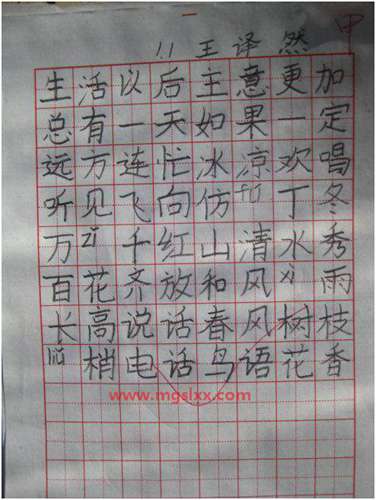 中
1.1 王译然
生活以后主意更加
总有一天如果一定
远方连忙冰凉欢唱
听见飞向仿 丁冬
万zǐ千红山清水秀
百花齐放和风xì雨
长高说话春风树枝
梢电话鸟语花香
www.mgslxx.com